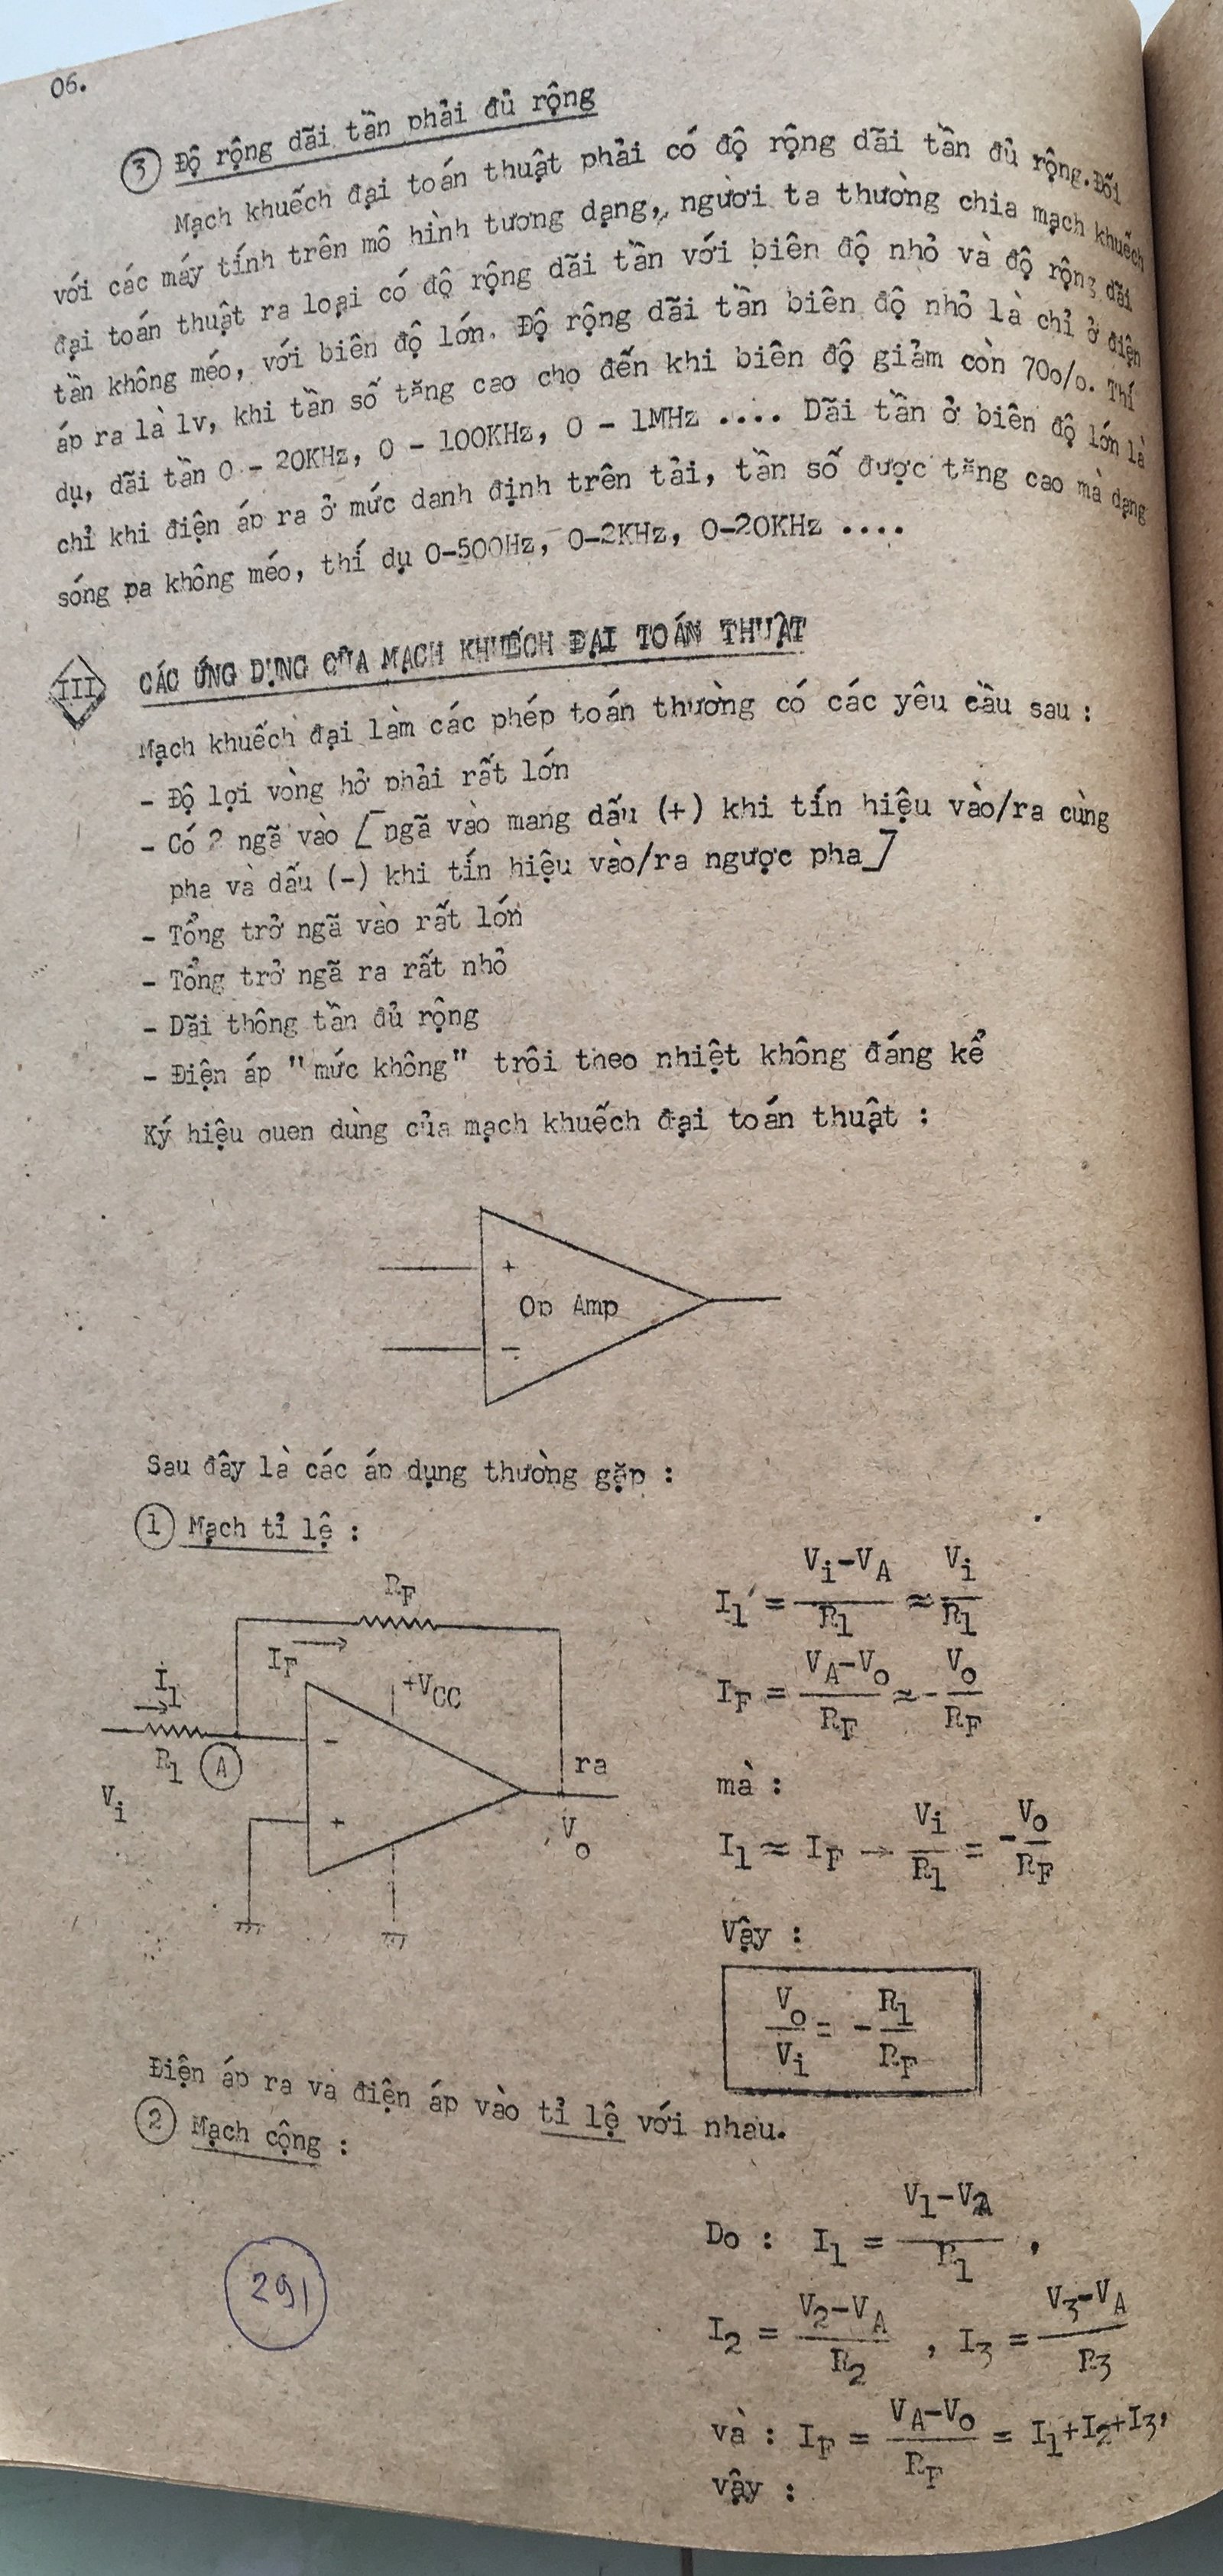 06.
③ Độ rộng dãi tần phải đủ rộng
Mạch khuếch đại toán thuật phải có độ rộng dãi tần đủ rộng. Đối
với các máy tính trên mô hình tương dạng, người ta thường chia mạch khuếch
đại toán thuật ra loại có độ rộng dãi tần với biên độ nhỏ và độ rộng dãi
tần không méo, với biên độ lớn. Độ rộng dãi tần biên độ nhỏ là chỉ ở điện
áp ra là lv, khi tần số tăng cao cho đến khi biên độ giảm còn 70o/o. Thí
dụ, dãi tần 0 - 20KHz, 0 - 100KHz, 0 - 1MHz .... Dãi tần ở biên độ lớn là
chỉ khi điện áp ra ở mức danh định trên tải, tần số được tăng cao mà dạng
sóng ra không méo, thí dụ 0-500Hz, 0-2KHz, 0-20KHz ....
III CÁC ỨNG DỤNG CỦA MẠCH KHUẾCH ĐẠI TOÁN THUẬT
Mạch khuếch đại làm các phép toán thường có các yêu cầu sau :
- Độ lợi vòng hở phải rất lớn
- Có 2 ngã vào [ngã vào mang dấu (+) khi tín hiệu vào/ra cùng
pha và dấu (-) khi tín hiệu vào/ra ngược pha]
- Tổng trở ngã vào rất lớn
- Tổng trở ngã ra rất nhỏ
- Dãi thông tần đủ rộng
- Điện áp "mức không" trôi theo nhiệt không đáng kể
Ký hiệu quen dùng của mạch khuếch đại toán thuật :
+
Op Amp
-
Sau đây là các áp dụng thường gặp :
① Mạch tỉ lệ :
R_F
I_F
+V_CC
I_1
R_1 A
-
+
V_i
ra
V_o
I_1 = (V_i-V_A)/R_1 ≈ V_i/R_1
I_F = (V_A-V_o)/R_F ≈ - V_o/R_F
mà :
I_1 ≈ I_F → V_i/R_1 = - V_o/R_F
Vậy :
V_o/V_i = - R_1/R_F
Điện áp ra và điện áp vào tỉ lệ với nhau.
② Mạch cộng :
Do : I_1 = (V_1-V_A)/R_1 ,
I_2 = (V_2-V_A)/R_2 , I_3 = (V_3-V_A)/R_3
và : I_F = (V_A-V_o)/R_F = I_1+I_2+I_3,
vậy :
291